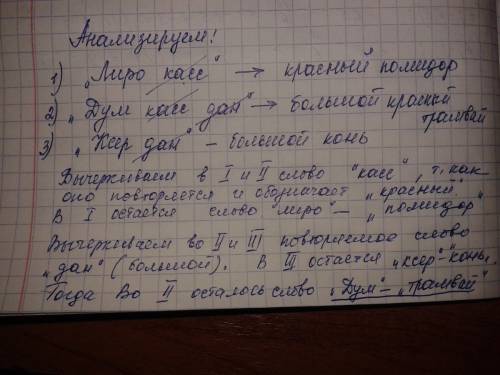 Анализируем!
1) „Лиро касс" → красный помидор
2) „Дум касс дан" → большой красный
трамвай
3) „Ксер дан" – большой конь
Вычеркиваем в I и II слово "касс", т. как
оно повторяется и обозначает „красный".
В I остается слово "лиро" – „помидор"
Вычеркиваем во II и III повторяемое слово
„дан" (большой). В III остается „ксер"-"конь".
Тогда во II осталось слово „Дум" – „трамвай"